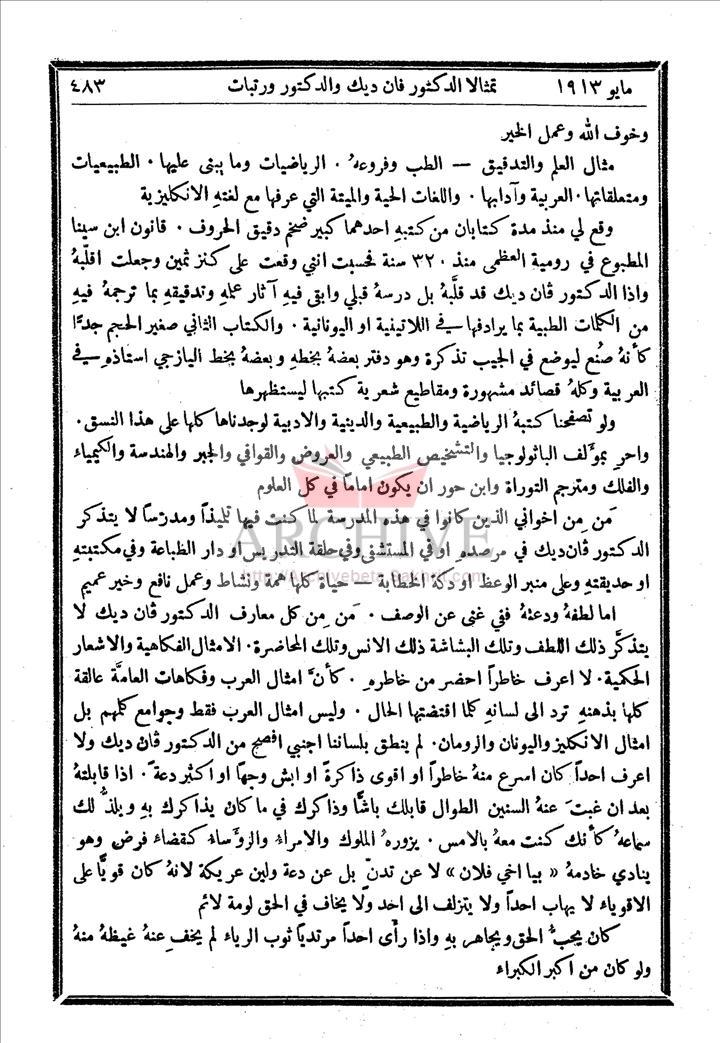 مايو ١٩١٣ تمثالا الدكتور فان ديك والدكتور ورتبات ٤٨٣
وخوف الله وعمل الخير
مثال العلم والتدقيق — الطب وفروعهُ . الرياضيات وما يبنى عليها . الطبيعيات
ومتعلقاتها . العربية وآدابها . واللغات الحية والميتة التي عرفها مع لغتهِ الانكليزية
وقع لي منذ مدة كتابان من كتبهِ احدهما كبير ضخم دقيق الحروف . قانون ابن سينا
المطبوع في رومية العظمى منذ ٣٢٠ سنة فحسبت انني وقعت على كنز ثمين وجعلت اقلّبهُ
واذا الدكتور ڤان ديك قد قلَّبهُ بل درسهُ قبلي وابقى فيهِ آثار عملهِ وتدقيقهِ بما ترجمهُ فيهِ
من الكلمات الطبية بما يرادفها في اللاتينية او اليونانية . والكتاب الثاني صغير الحجم جدًّا
كأنهُ صُنع ليوضع في الجيب تذكرة وهو دفتر بعضهُ بخطهِ وبعضهُ بخط اليازجي استاذهِ في
العربية وكلهُ قصائد مشهورة ومقاطيع شعرية كتبها ليستظهرها
ولو تصفحنا كتبهُ الرياضية والطبيعية والدينية والادبية لوجدناها كلها على هذا النسق .
واحرِ بمؤلف الباثولوجيا والتشخيص الطبيعي والعروض والقوافي والجبر والهندسة والكيمياء
والفلك ومترجم التوراة وابن حور ان يكون اماماً في كل العلوم
مَن مِن اخواني الذين كانوا في هذه المدرسة لما كنت فيها تلميذاً ومدرّساً لا يتذكر
الدكتور ڤان ديك في مرصدهِ او في المستشفى وفي حلقة التدريس او دار الطباعة وفي مكتبتهِ
او حديقتهِ وعلى منبر الوعظ او دكة الخطابة — حياة كلها همة ونشاط وعمل نافع وخير عميم
اما لطفهُ ودعتهُ ففي غنى عن الوصف . مَن مِن كل معارف الدكتور ڤان ديك لا
يتذكَّر ذلك اللطف وتلك البشاشة ذلك الانس وتلك المحاضرة . الامثال الفكاهية والاشعار
الحكمية . لا اعرف خاطراً احضر من خاطرهِ . كأنَّ امثال العرب وفكاهات العامَّة عالقة
كلها بذهنهِ ترد الى لسانهِ كلما اقتضتها الحال . وليس امثال العرب فقط وجوامع كلمهم بل
امثال الانكليز واليونان والرومان . لم ينطق بلساننا اجنبي افصح من الدكتور ڤان ديك ولا
اعرف احداً كان اسرع منهُ خاطراً او اقوى ذاكرةً او ابش وجهاً او اكثر دعةً . اذا قابلتهُ
بعد ان غبتَ عنهُ السنين الطوال قابلك باشًّا وذاكرك في ما كان يذاكرك بهِ ويلذُّ لك
سماعهُ كأنك كنت معهُ بالامس . يزورهُ الملوك والامراءُ والرؤساءُ كقضاء فرض وهو
ينادي خادمهُ « بيا اخي فلان » لا عن تدنٍّ بل عن دعة ولين عريكة لانهُ كان قويًّا على
الاقوياء لا يهاب احداً ولا يتزلف الى احد ولا يخاف في الحق لومة لائم
كان يحبُّ الحق ويجاهر بهِ واذا رأى احداً مرتدياً ثوب الرياء لم يخفِ عنهُ غيظهُ منهُ
ولو كان من اكبر الكبراء
ARCHIVE